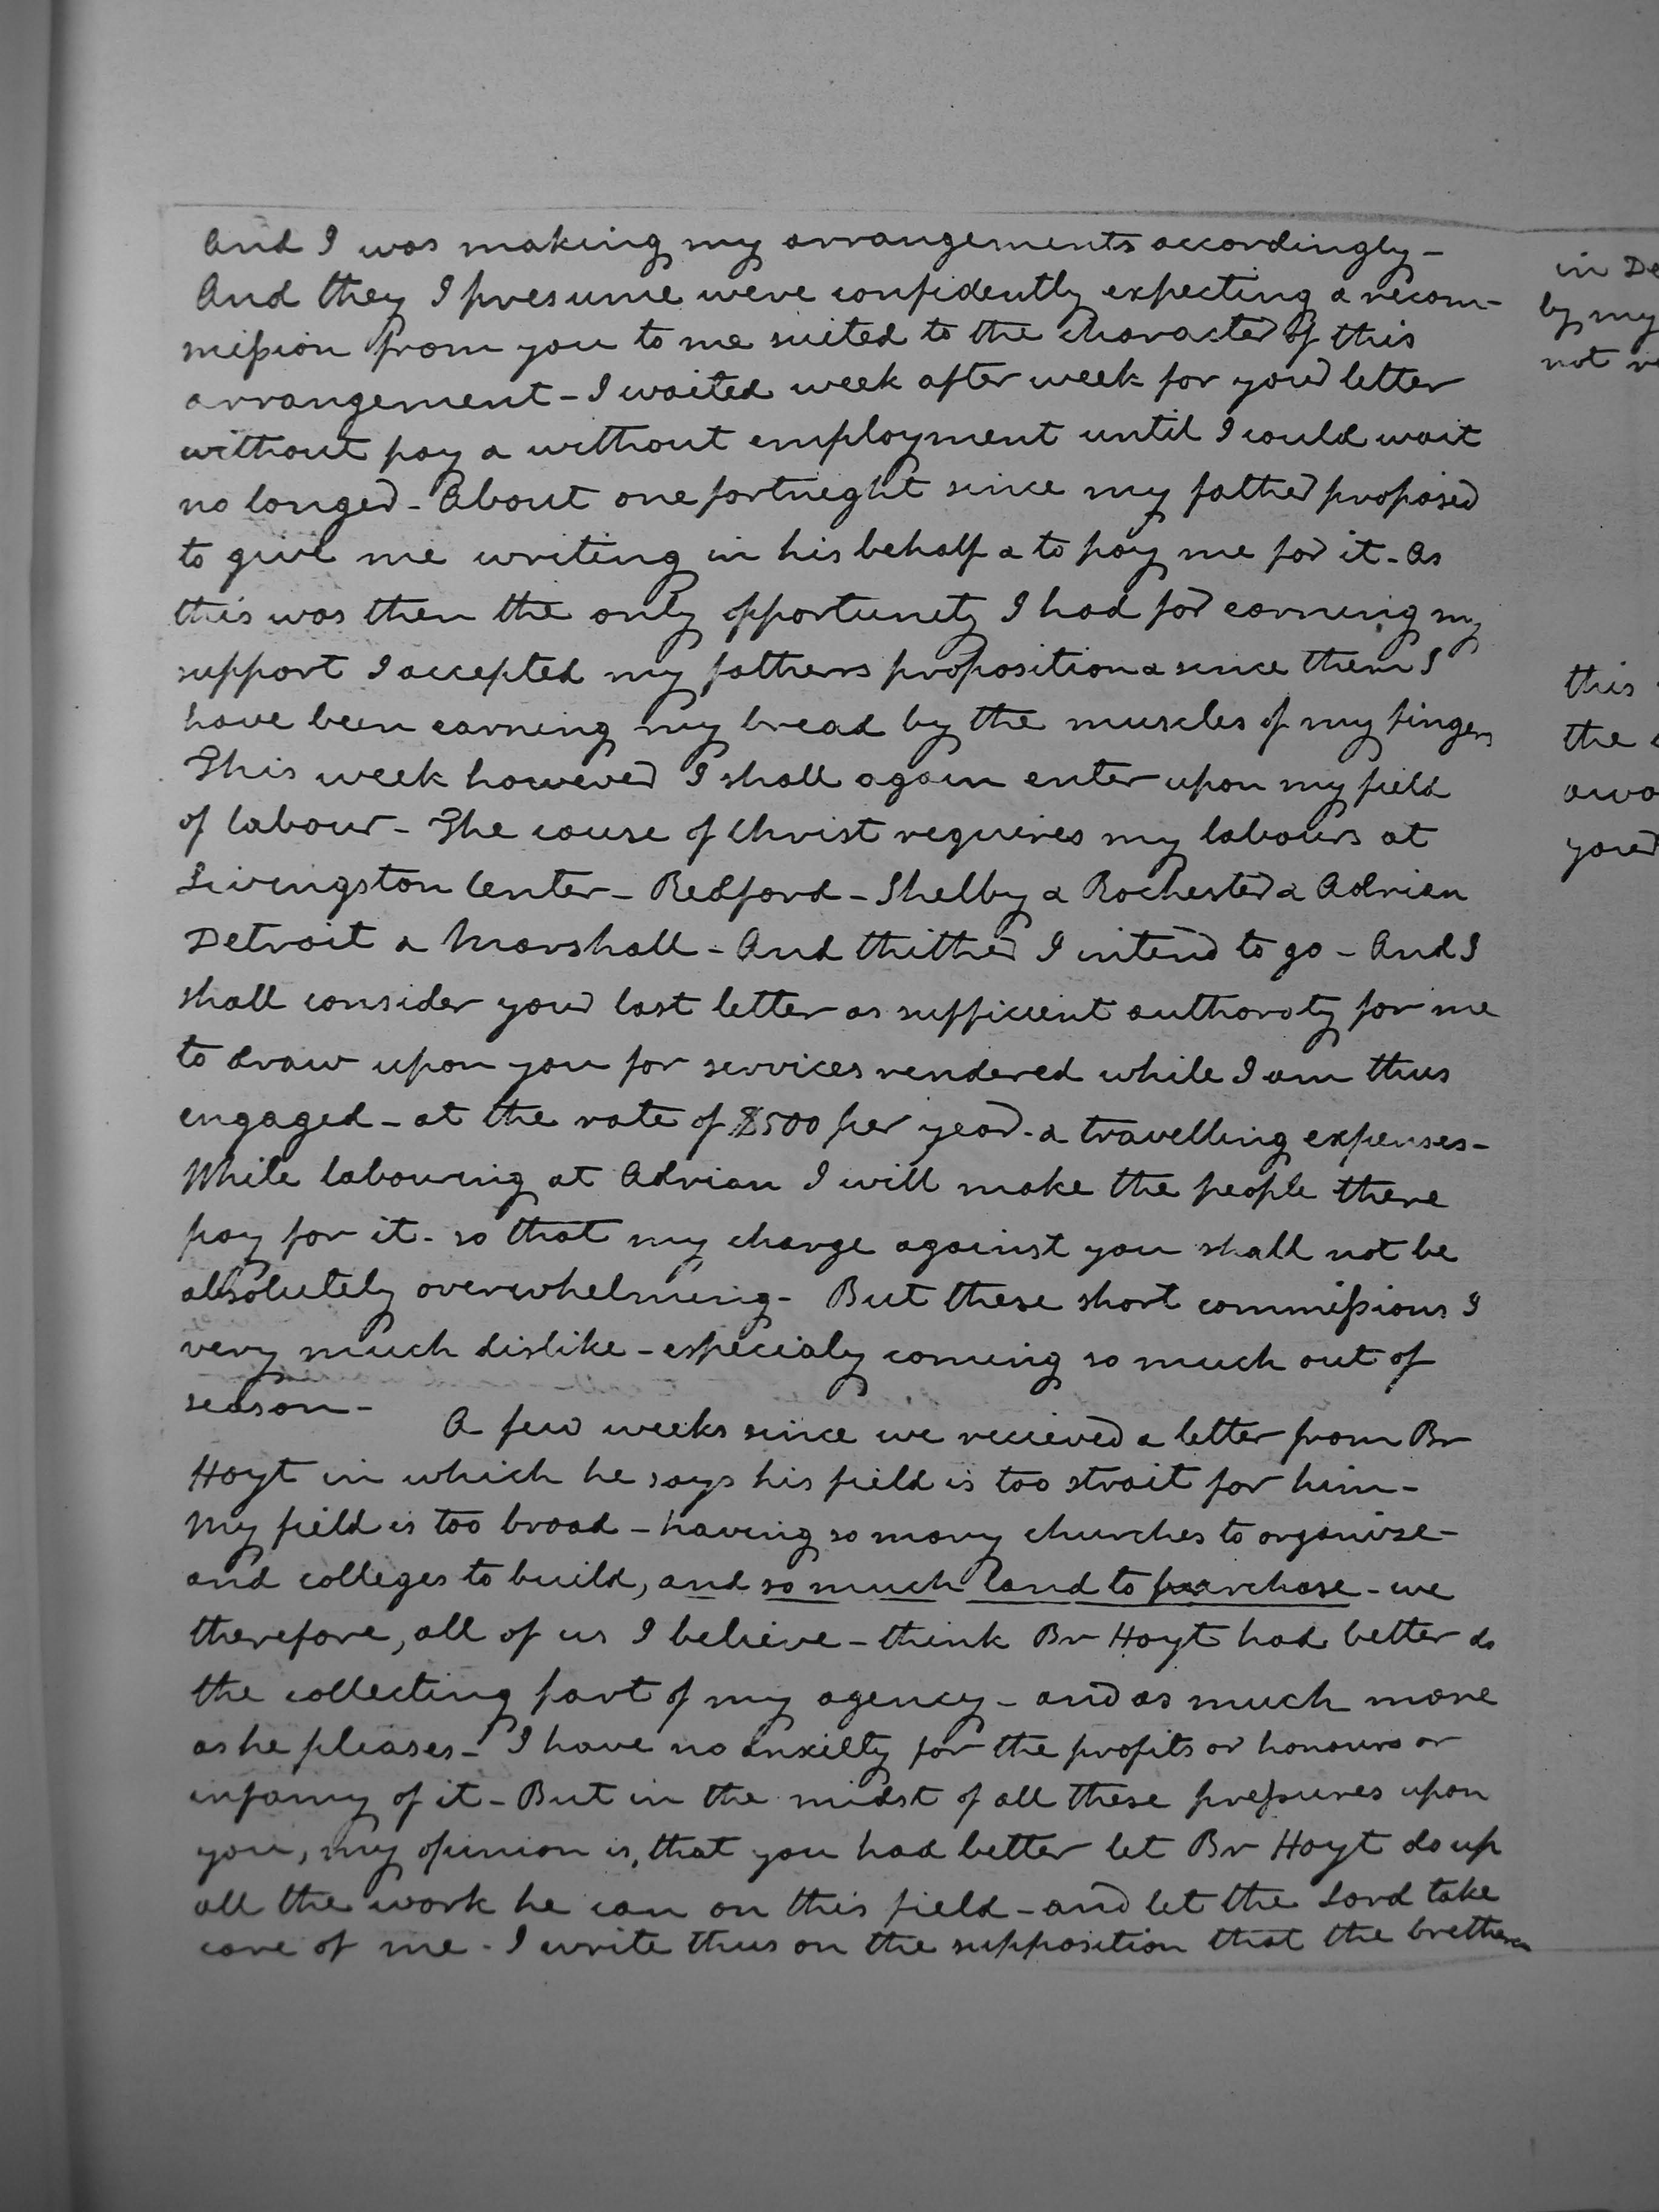 And I was making my arrangements accordingly -
And they I presume were confidently expecting a recom-
mission from you to me suited to the character of this
arrangement - I waited week after week for your letter
without pay & without employment until I could wait
no longer - About one fortnight since my father proposed
to give me writing in his behalf & to pay me for it - As
this was then the only opportunity I had for earning my
support I accepted my fathers proposition & since then I
have been earning my bread by the muscles of my fingers
This week however I shall again enter upon my field
of labour - The cause of Christ requires my labours at
Livingston Center - Redford - Shelby & Rochester & Adrian
Detroit & Marshall - And thither I intend to go - And I
shall consider your last letter as sufficient authoraty for me
to draw upon you for services rendered while I am thus
engaged - at the rate of $500 per year - & travelling expenses -
While labouring at Adrian I will make the people there
pay for it - so that my charge against you shall not be
absolutely overwhelming - But these short commissions I
very much dislike - especialy coming so much out of
season -
A few weeks since we recieved a letter from Br
Hoyt in which he says his field is too strait for him -
My field is too broad - having so many churches to organise -
and colleges to build, and so much land to purchase - we
therefore, all of us I believe - think Br Hoyt had better do
the collecting part of my agency - and as much more
as he pleases - I have no anxiety for the profits or honours or
infamy of it - But in the midst of all these pressures upon
you, my opinion is, that you had better let Br Hoyt do up
all the work he can on this field - and let the Lord take
care of me - I write thus on the supposition that the brethren
in De
by my
not re
this
the
awa
your